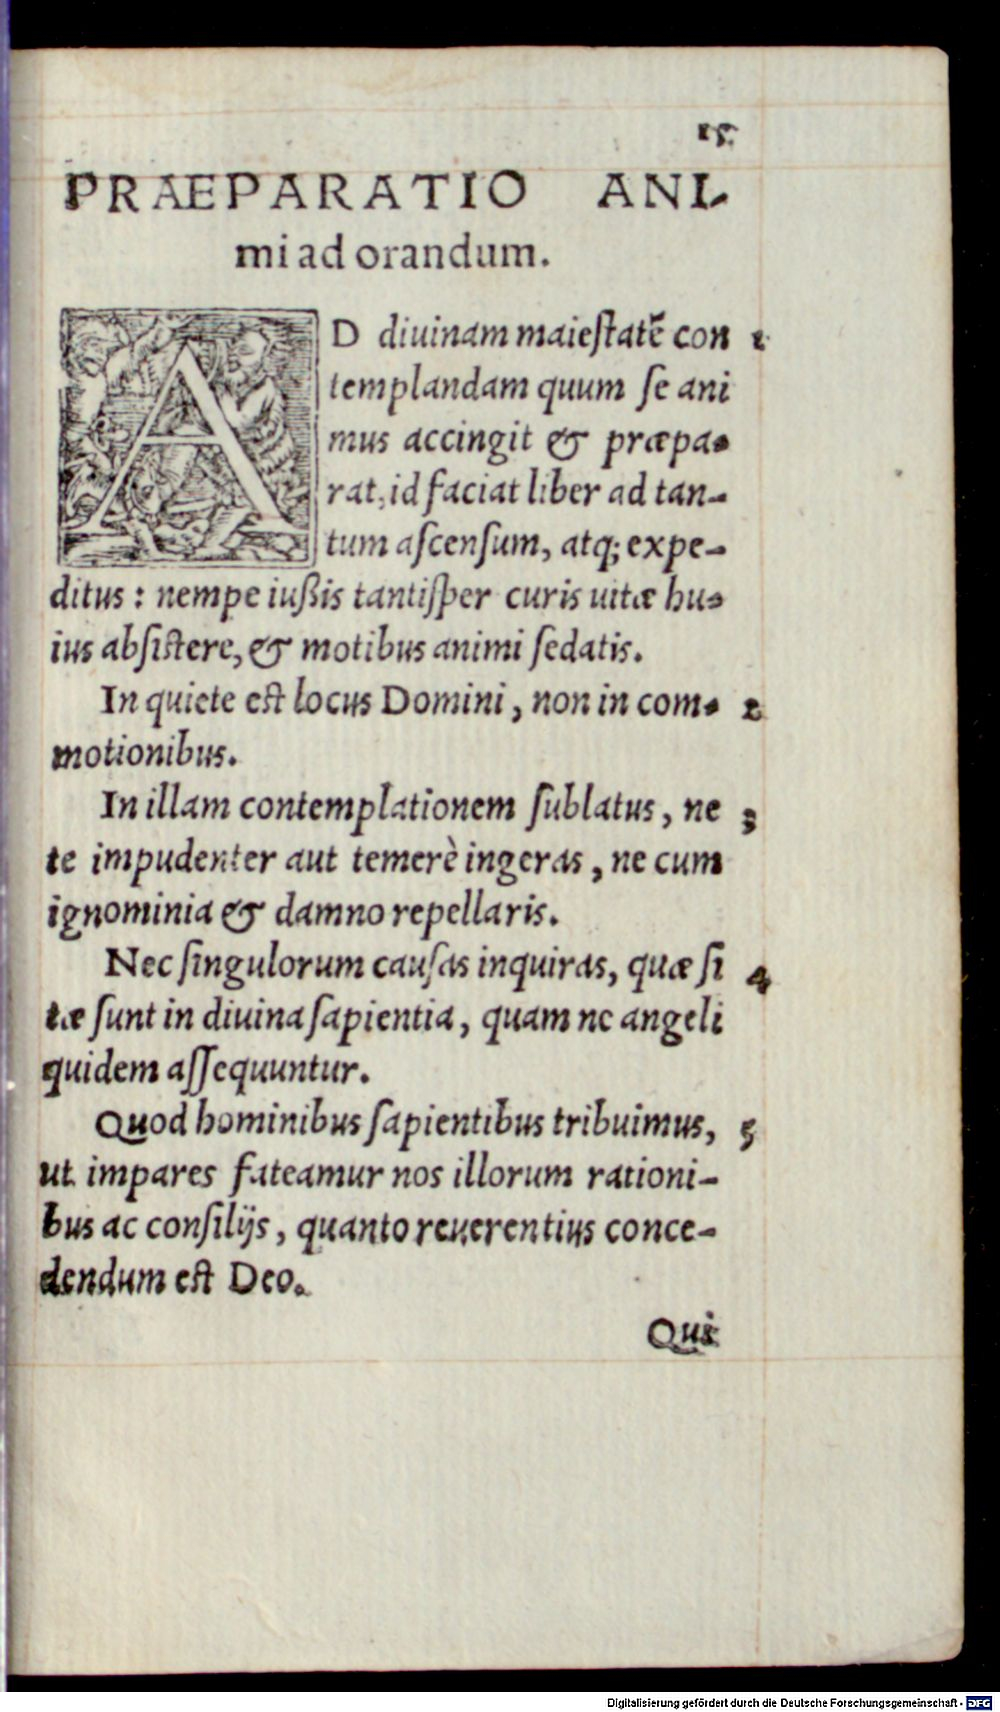 15.
PRAEPARATIO ANI-
mi ad orandum.
AD diuinam maiestatē con 1
templandam quum se ani
mus accingit & præpa-
rat, id faciat liber ad tan-
tum ascensum, atq; expe-
ditus: nempe iußis tantisper curis uitæ hu-
ius absistere, & motibus animi sedatis.
In quiete est locus Domini, non in com- 2
motionibus.
In illam contemplationem sublatus, ne 3
te impudenter aut temerè ingeras, ne cum
ignominia & damno repellaris.
Nec singulorum causas inquiras, quæ si 4
tæ sunt in diuina sapientia, quam ne angeli
quidem assequuntur.
Quod hominibus sapientibus tribuimus, 5
ut impares fateamur nos illorum rationi-
bus ac consilijs, quanto reuerentius conce-
dendum est Deo.
Qui
Digitalisierung gefördert durch die Deutsche Forschungsgemeinschaft - DFG